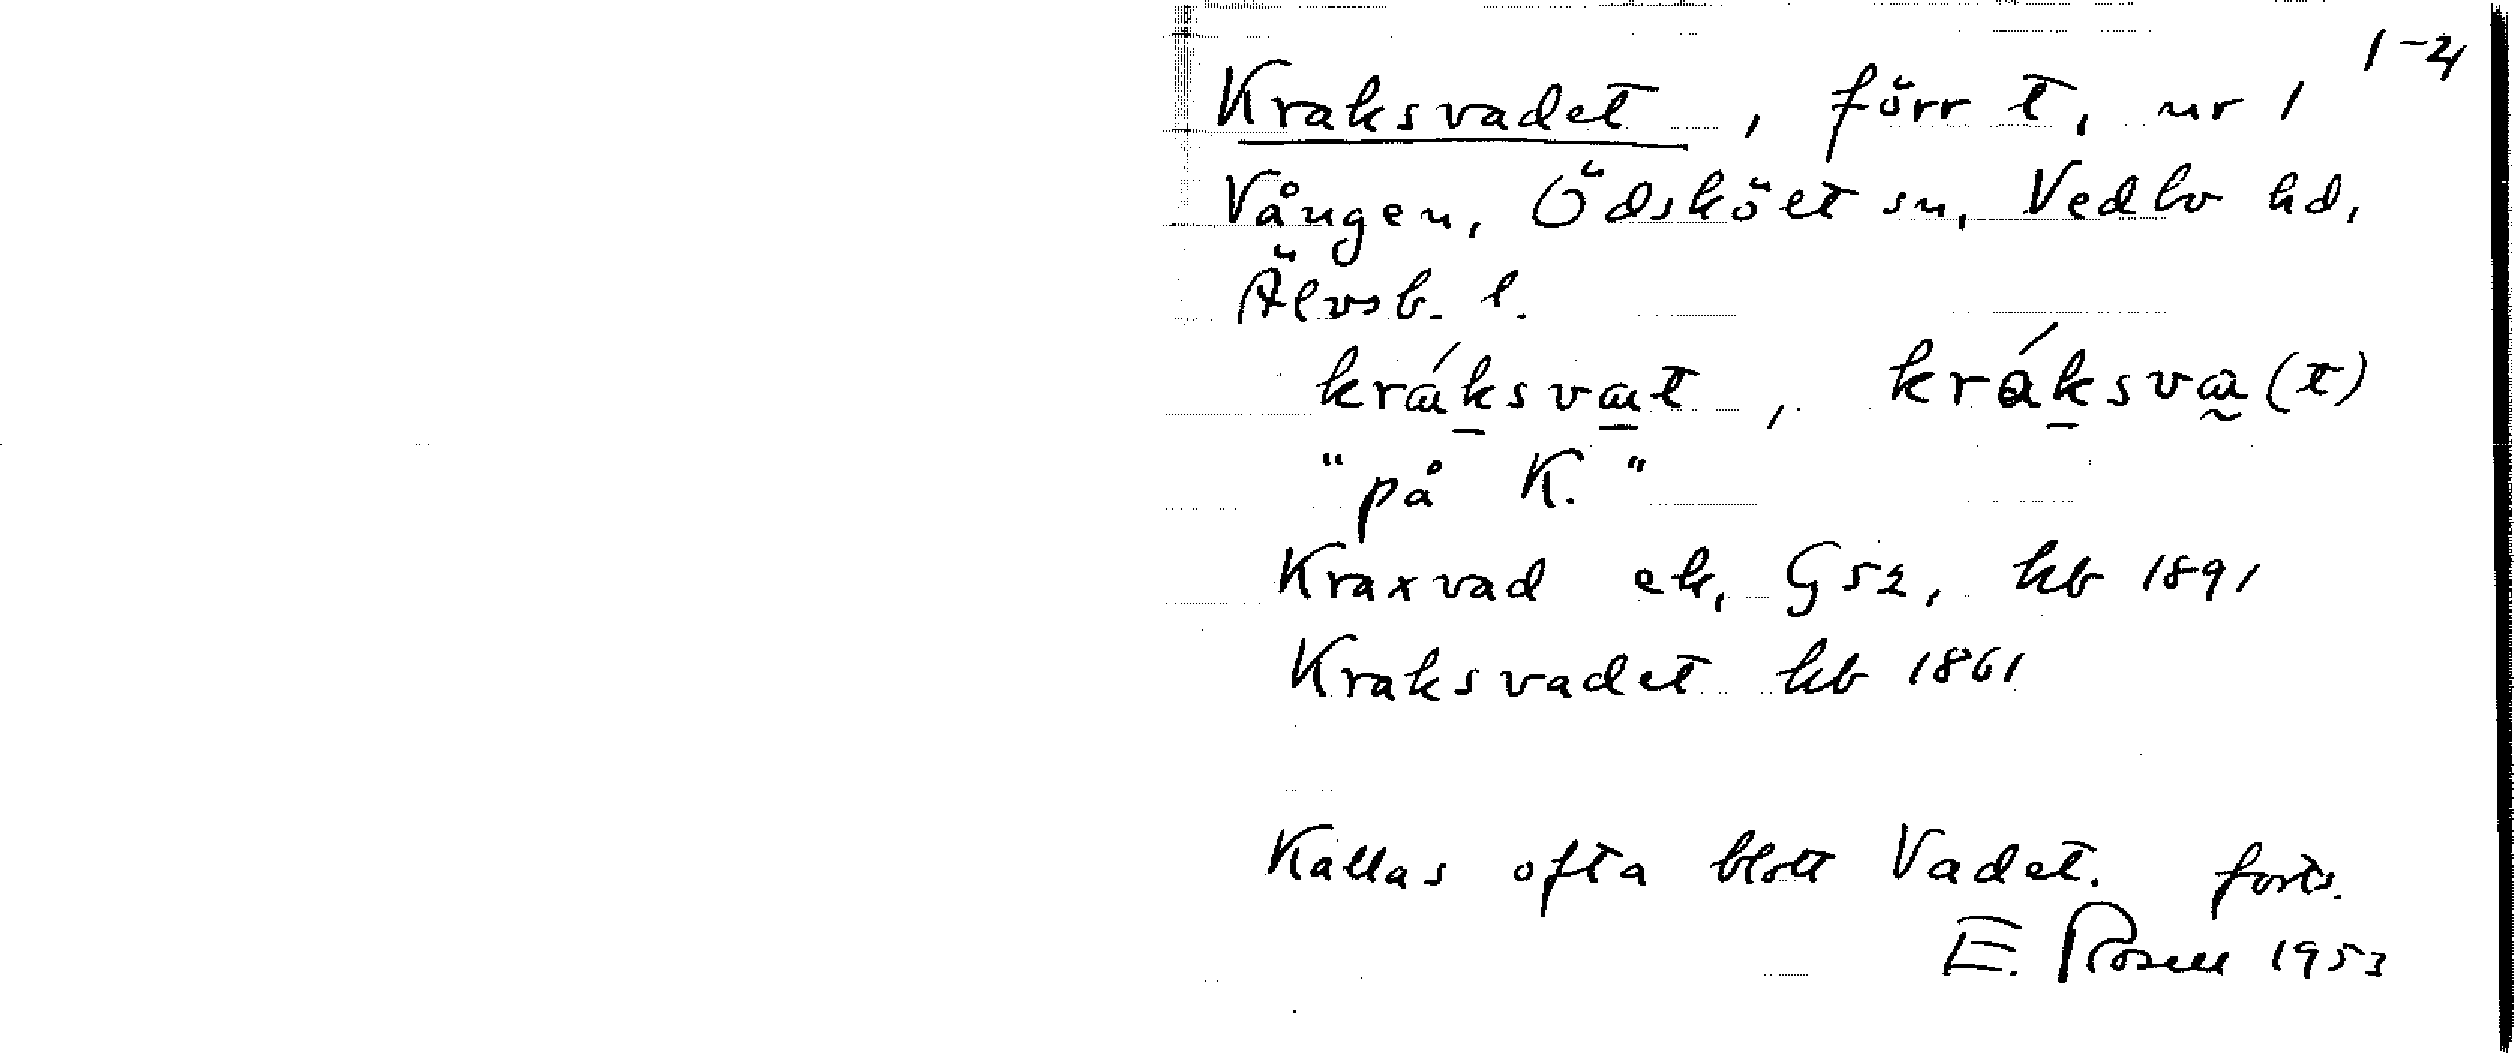 1-2
Kraksvadet, förr t, ur 1
Vången, Ödsköelt sn, Vedbo hd,
Älvsb. l.
kráksvat, kráksva(t)
"på K."
Kraxvad ek, G52, kb 1891
Kraksvadet kb 1861
Kallas ofta blott Vadet. forts.
E. Rosell 1953